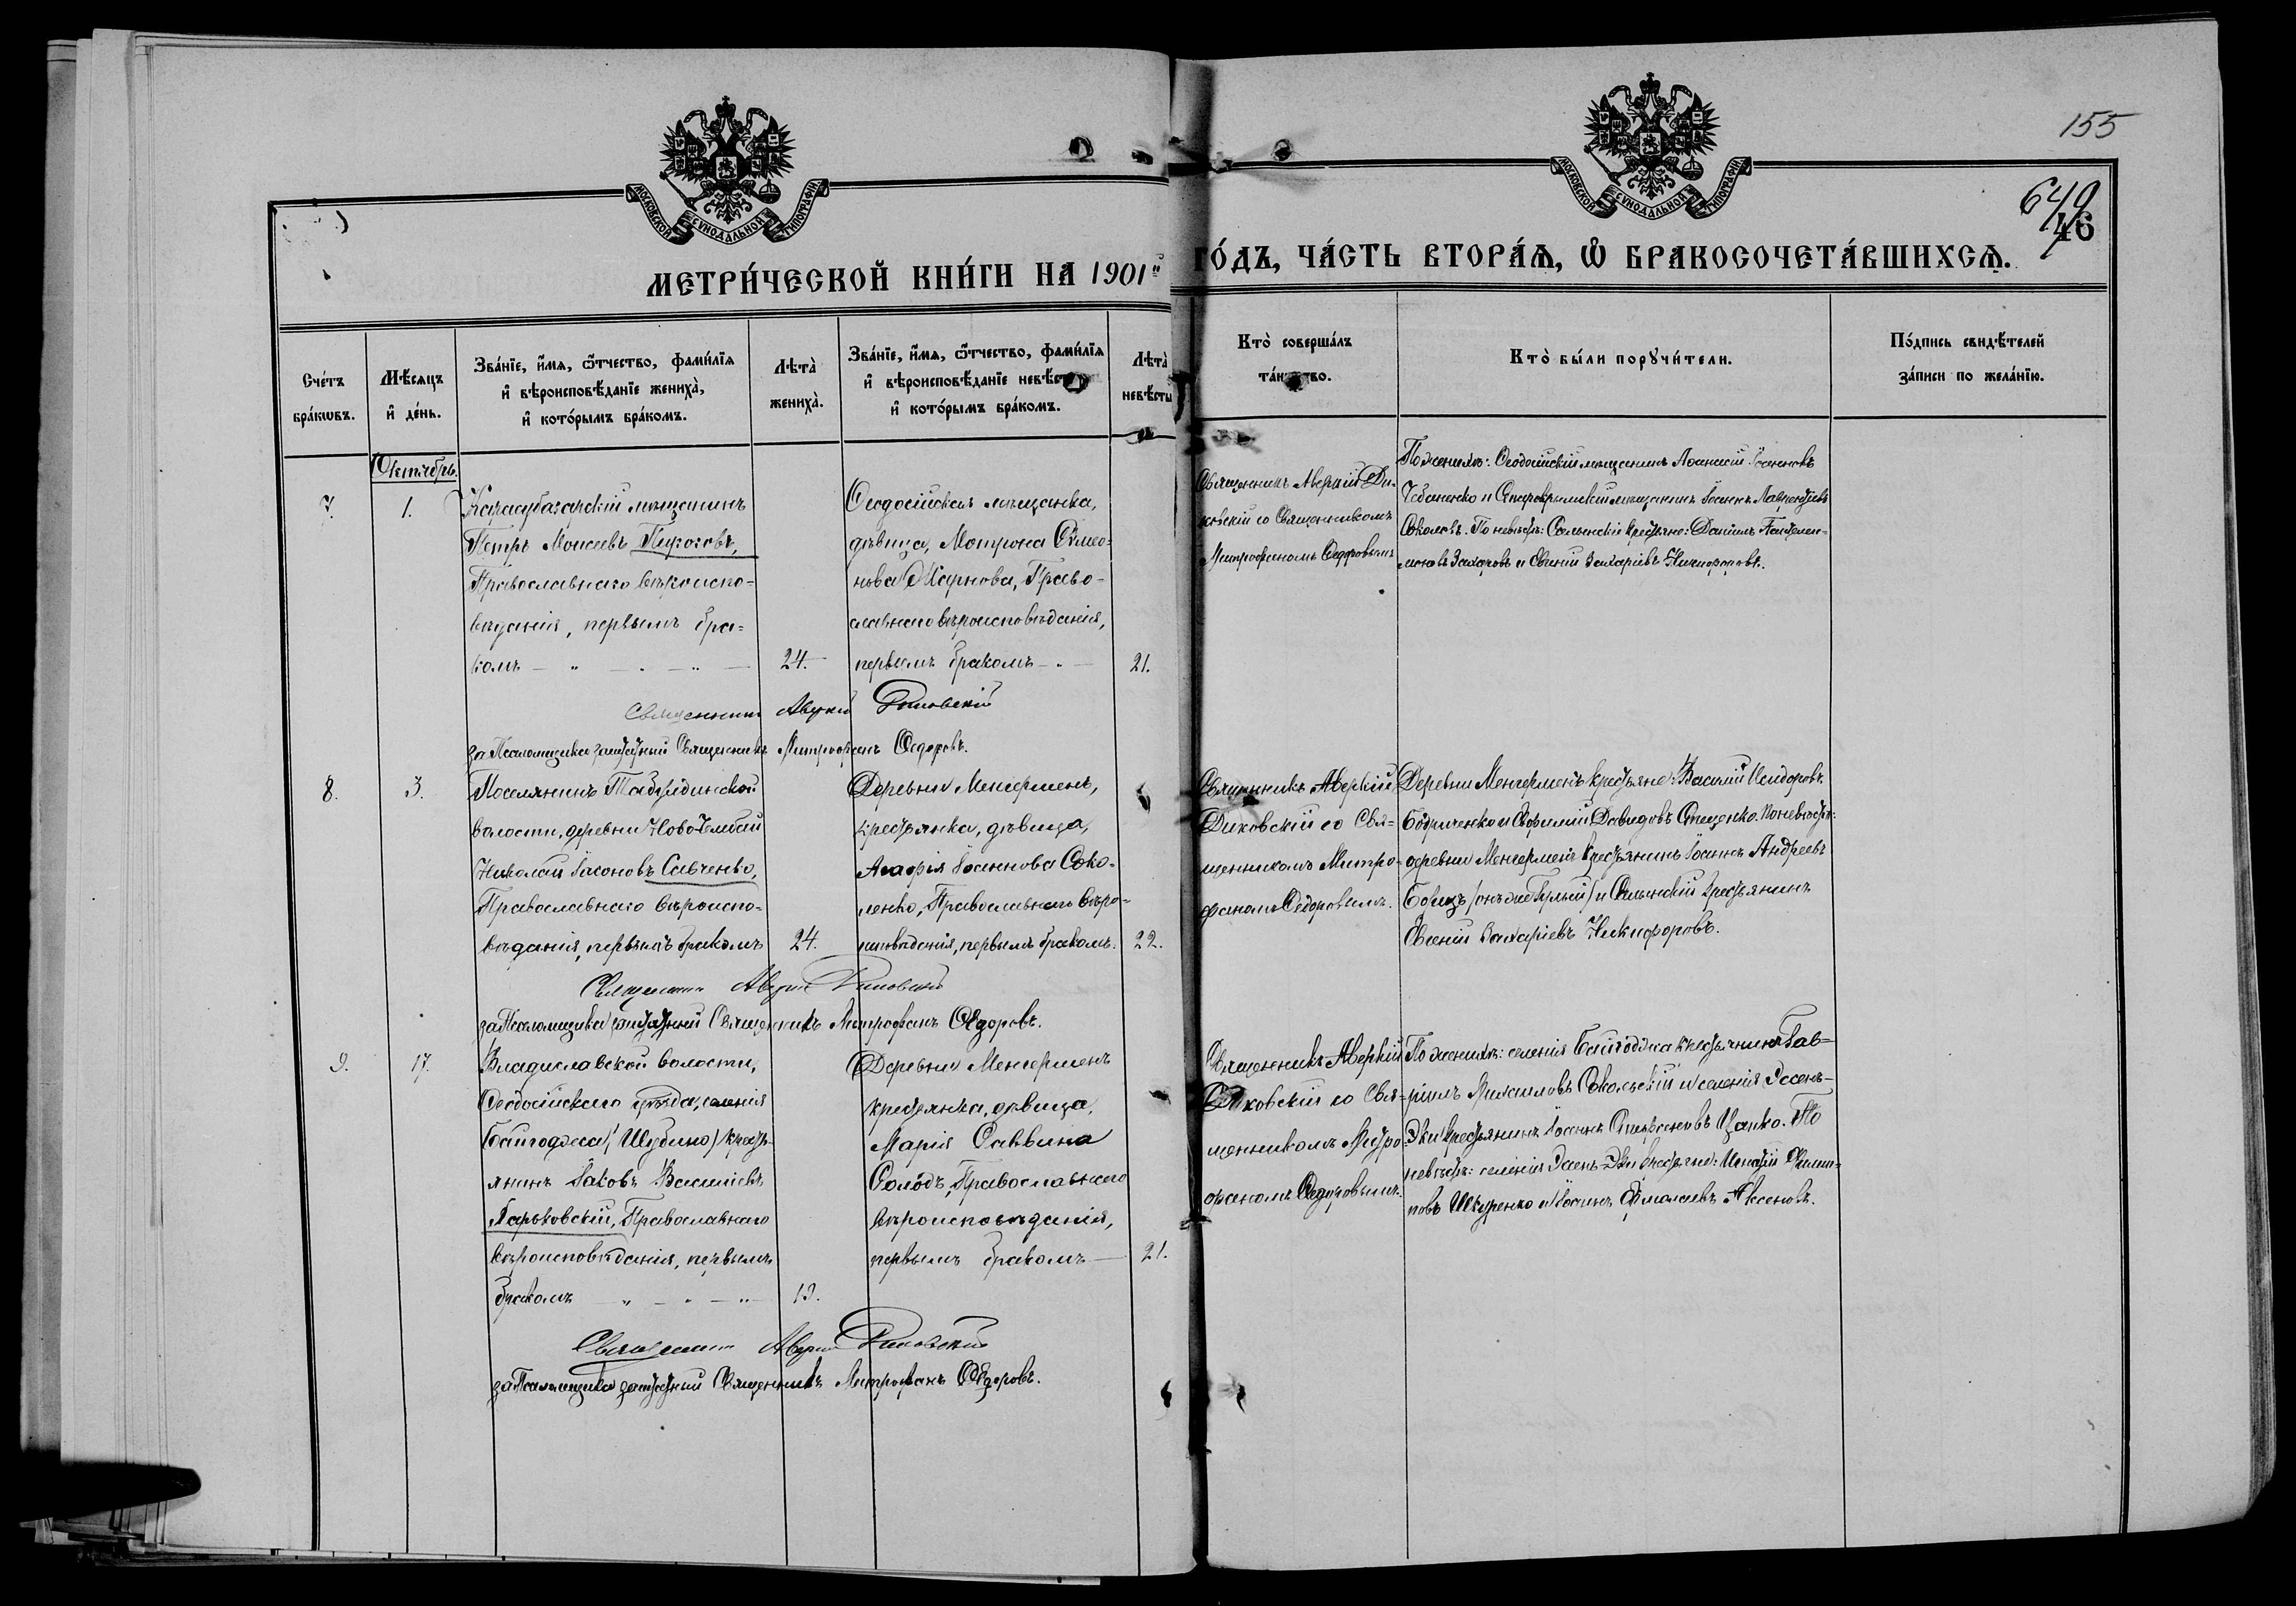 155
640
46
МОСКОВСКОЙ СѴНОДАЛЬНОЙ ТИПОГРАФІИ
МОСКОВСКОЙ СѴНОДАЛЬНОЙ ТИПОГРАФІИ
МЕТРИ́ЧЕСКОЙ КНИ́ГИ НА 1901й ГО́ДЪ, ЧА́СТЬ ВТОРА́Ѧ, Ѡ҆ БРАКОСОЧЕТА́ВШИХСѦ.
Сче́тъ бра́кѡвъ.
Мѣ́сѧцъ и҆ де́нь.
Зва́нїе, и҆́мѧ, ѻ҆́тчество, фами́лїѧ и҆ вѣроисповѣ́данїе жениха̀, и҆ кото́рымъ бра́комъ.
Лѣта̀ жениха̀.
Зва́нїе, и҆́мѧ, ѻ҆́тчество, фами́лїѧ и҆ вѣроисповѣ́данїе невѣ́сты и҆ кото́рымъ бра́комъ.
Лѣта̀ невѣ́сты
Кто̀ соверша́лъ та́инство.
Кто̀ бы́ли порꙋчи́тели.
По́дпись свидѣ́телей за́писи по жела́нїю.
Октябрь.
7.
1.
Карасубазарскій мѣщанинъ
Петръ Моисеевъ Пироговъ,
Православнаго вѣроиспо-
вѣданія, первымъ бра-
комъ
24.
Ѳеодосійская мѣщанка,
дѣвица, Матрона Сѵмео-
нова Жарнова, Право-
славнаго вѣроисповѣданія,
первымъ бракомъ
21.
Священникъ Аверкій Ди-
ковскій со Священникомъ
Митрофаномъ Ѳедоровымъ
По женихѣ: Ѳеодосійскій мѣщанинъ Іоанновъ
Чебаненко и Старокрымскій мѣщанинъ Іоаннъ Лаврентіевъ
Соколовъ. По невѣстѣ: крестьяне: Даніилъ Пантелеи-
моновъ Захаровъ и Евгеній Захаріевъ Никифоровъ.
Священникъ Аверкій Диковскій
за Псаломщика заштатный Священникъ Митрофанъ Ѳедоровъ.
8.
3.
Поселянинъ Табулдинской
волости, деревни Ново-
Николай Іасоновъ Савченко,
Православнаго вѣроиспо-
вѣданія, первымъ бракомъ
24.
Деревни Менгерменъ,
крестьянка, дѣвица,
Агафія Іоаннова Соко-
ленко, Православнаго вѣро-
исповѣданія, первымъ бракомъ.
22.
Священникъ Аверкій
Диковскій со Свя-
щенникомъ Митро-
фаномъ Ѳедоровымъ.
Деревни Менгерменъ крестьяне: Василій Исидоровъ
и Евфимій Давидовъ Стеценко. По невѣстѣ:
деревни Менгерменъ крестьянинъ Іоаннъ Андреевъ
и крестьянинъ
Евгеній Захаріевъ Никифоровъ.
Священникъ Аверкій Диковскій
за Псаломщика заштатный Священникъ Митрофанъ Ѳедоровъ.
9.
17.
Владиславской волости,
Ѳеодосійскаго уѣзда, селенія
Байгоджа (Шубино) кресть-
янинъ Іаковъ Василіевъ
Харьковскій, Православнаго
вѣроисповѣданія, первымъ
бракомъ
19.
Деревни Менгерменъ
крестьянка, дѣвица,
Марія Саввина
Солодъ, Православнаго
вѣроисповѣданія,
первымъ бракомъ
21.
Священникъ Аверкій
Диковскій со Свя-
щенникомъ Митро-
фаномъ Ѳедоровымъ.
По женихѣ: селенія Байгоджа крестьянинъ Гав-
ріилъ Михаиловъ Сокольскій и селенія Эсенъ-
Эки крестьянинъ Іоаннъ Стефановъ Цапко. По
невѣстѣ: селенія Эсенъ-Эки крестьяне: Игнатій Филип-
повъ Шкуренко и Іоаннъ Ермолаевъ Аксеновъ.
Священникъ Аверкій Диковскій
за Псаломщика заштатный Священникъ Митрофанъ Ѳедоровъ.